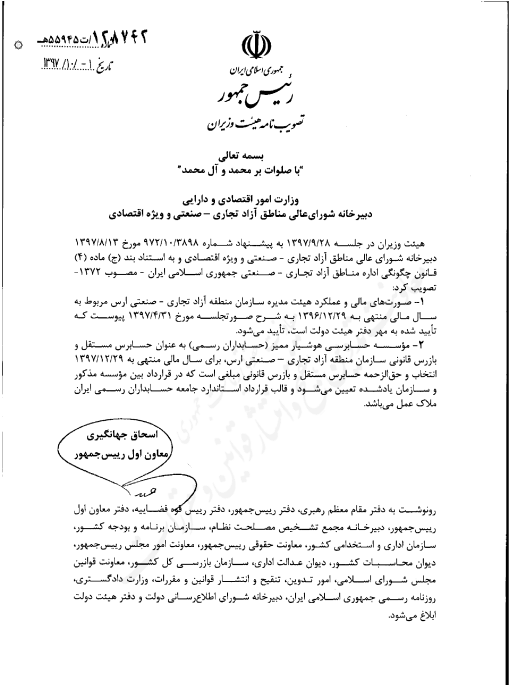 ۱۲۸۷۴۲/ت۵۵۹۴۵هـ
تاریخ ۱۳۹۷/۱۰/۰۱
جمهوری اسلامی ایران
رئیس جمهور
تصویب نامه هیئت وزیران
بسمه تعالی
"با صلوات بر محمد و آل محمد"
وزارت امور اقتصادی و دارایی
دبیرخانه شورای‌عالی مناطق آزاد تجاری – صنعتی و ویژه اقتصادی
هیئت وزیران در جلسه ۱۳۹۷/۹/۲۸ به پیشنهاد شماره ۹۷۲/۱۰/۳۸۹۸ مورخ ۱۳۹۷/۸/۱۳
دبیرخانه شورای عالی مناطق آزاد تجاری - صنعتی و ویژه اقتصادی و به استناد بند (ج) ماده (۴)
قانون چگونگی اداره مناطق آزاد تجاری - صنعتی جمهوری اسلامی ایران - مصوب ۱۳۷۲-
تصویب کرد:
۱- صورت‌های مالی و عملکرد هیئت مدیره سازمان منطقه آزاد تجاری - صنعتی ارس مربوط به
سال مالی منتهی به ۱۳۹۶/۱۲/۲۹ به شرح صورتجلسه مورخ ۱۳۹۷/۴/۳۱ پیوست که
تأیید شده به مهر دفتر هیئت دولت است، تأیید می‌شود.
۲- مؤسسه حسابرسی هوشیار ممیز (حسابداران رسمی) به عنوان حسابرس مستقل و
بازرس قانونی سازمان منطقه آزاد تجاری – صنعتی ارس، برای سال مالی منتهی به ۱۳۹۷/۱۲/۲۹
انتخاب و حق‌الزحمه حسابرس مستقل و بازرس قانونی مبلغی است که در قرارداد بین مؤسسه مذکور
و سازمان یادشده تعیین می‌شود و قالب قرارداد استاندارد جامعه حسابداران رسمی ایران
ملاک عمل می‌باشد.
اسحاق جهانگیری
معاون اول رییس‌جمهور
رونوشت به دفتر مقام معظم رهبری، دفتر رییس‌جمهور، دفتر رییس قوه قضاییه، دفتر معاون اول
رییس‌جمهور، دبیرخانه مجمع تشخیص مصلحت نظام، سازمان برنامه و بودجه کشور،
سازمان اداری و استخدامی کشور، معاونت حقوقی رییس‌جمهور، معاونت امور مجلس رییس‌جمهور،
دیوان محاسبات کشور، دیوان عدالت اداری، سازمان بازرسی کل کشور، معاونت قوانین
مجلس شورای اسلامی، امور تدوین، تنقیح و انتشار قوانین و مقررات، وزارت دادگستری،
روزنامه رسمی جمهوری اسلامی ایران، دبیرخانه شورای اطلاع‌رسانی دولت و دفتر هیئت دولت
ابلاغ می‌شود.